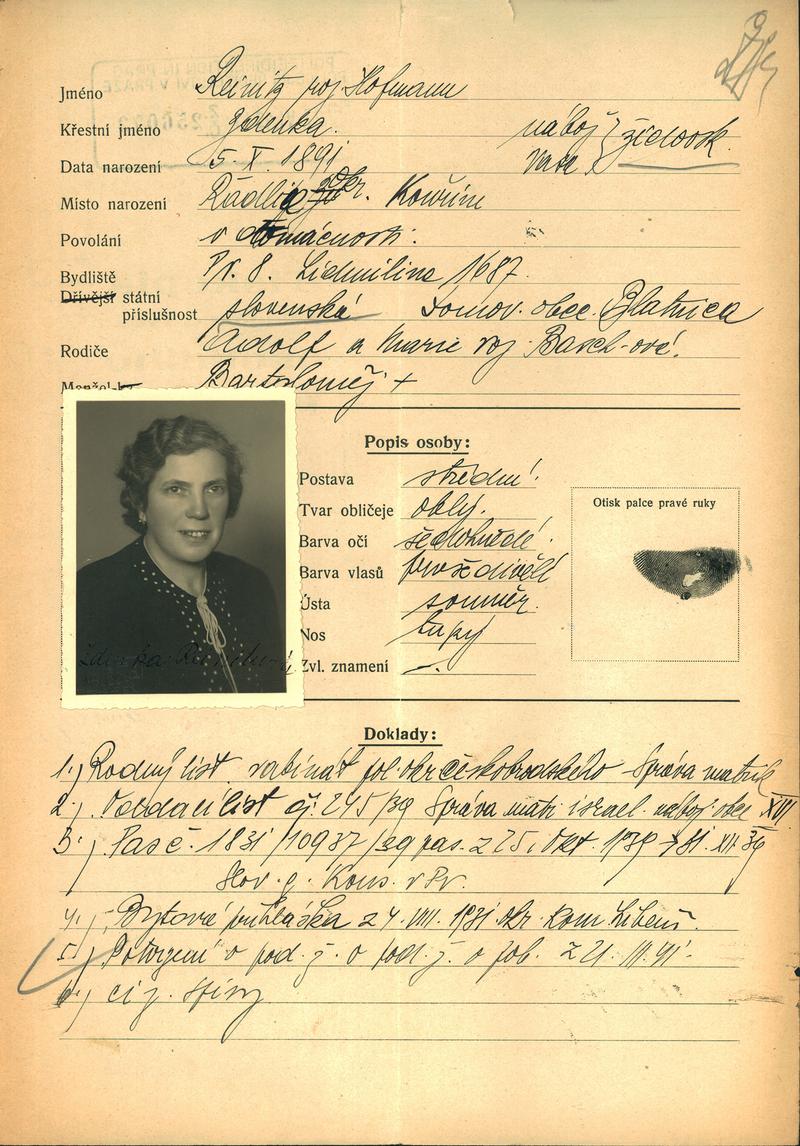 Jméno Reinitz roz. Hofmann
Křestní jméno Zdenka. nábož židovsk.
Data narození 5. X. 1891
Místo narození Kouřim
Povolání v domácnosti.
Bydliště Pr. 8. Lidmilina 1687.
Dřívější státní
příslušnost slovenská Domov. obec. Blatnica
Rodiče Adolf a Marie roz. Basch-ové.
Bartoloměj +
Popis osoby:
Postava střední
Tvar obličeje oblý.
Barva očí šedohnědé.
Barva vlasů prošedivělé
Ústa souměr.
Nos tupý
Zvl. znamení –.
Otisk palce pravé ruky
Zdenka
Doklady:
1.) Rodný list rabinát pol. okr. českobrodského Správa matrik
2.) Oddací list čj. 245/39 Správa matr. israel. nábož. obce XVI
3.) Pas č. 1831/10937/39 z 25. Okt. 1939 31. XII 39
Slov. g. Kons. v Pr.
4.) Bytová přihláška z 4. VIII. 1931 Okr. kom. Libeň.
5.) Potvrzení o pod. ž. o z 21. III. 41.
6.)